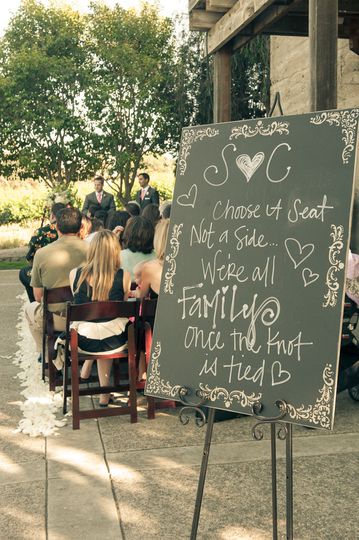 S ♥ C
Choose A Seat
Not a Side...
We're all
FAMILY
once the knot
is tied ♡